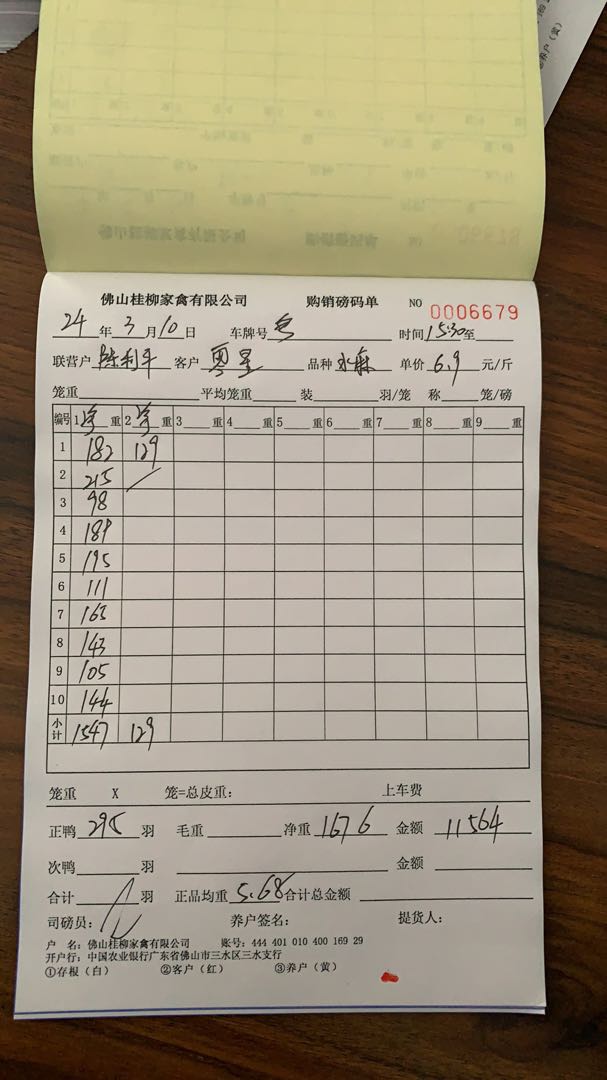 佛山桂柳家禽有限公司 购销磅码单 NO 0006679
24 年 3 月 10 日 车牌号 时间 15:30 至
联营户 陈利平 客户 品种 水麻 单价 6.9 元/斤
笼重 平均笼重 装 羽/笼 称 笼/磅
编号 1 重 2 重 3 重 4 重 5 重 6 重 7 重 8 重 9 重
1 182 129
2 215
3 98
4 189
5 195
6 111
7 165
8 143
9 105
10 144
小计 1547 129
笼重 X 笼=总皮重: 上车费
正鸭 295 羽 毛重 净重 1676 金额 11564
次鸭 羽 金额
合计 羽 正品均重 5.68 合计总金额
司磅员: 养户签名: 提货人:
户 名: 佛山桂柳家禽有限公司 账号: 444 401 010 400 169 29
开户行: 中国农业银行广东省佛山市三水区三水支行
①存根(白) ②客户(红) ③养户(黄)